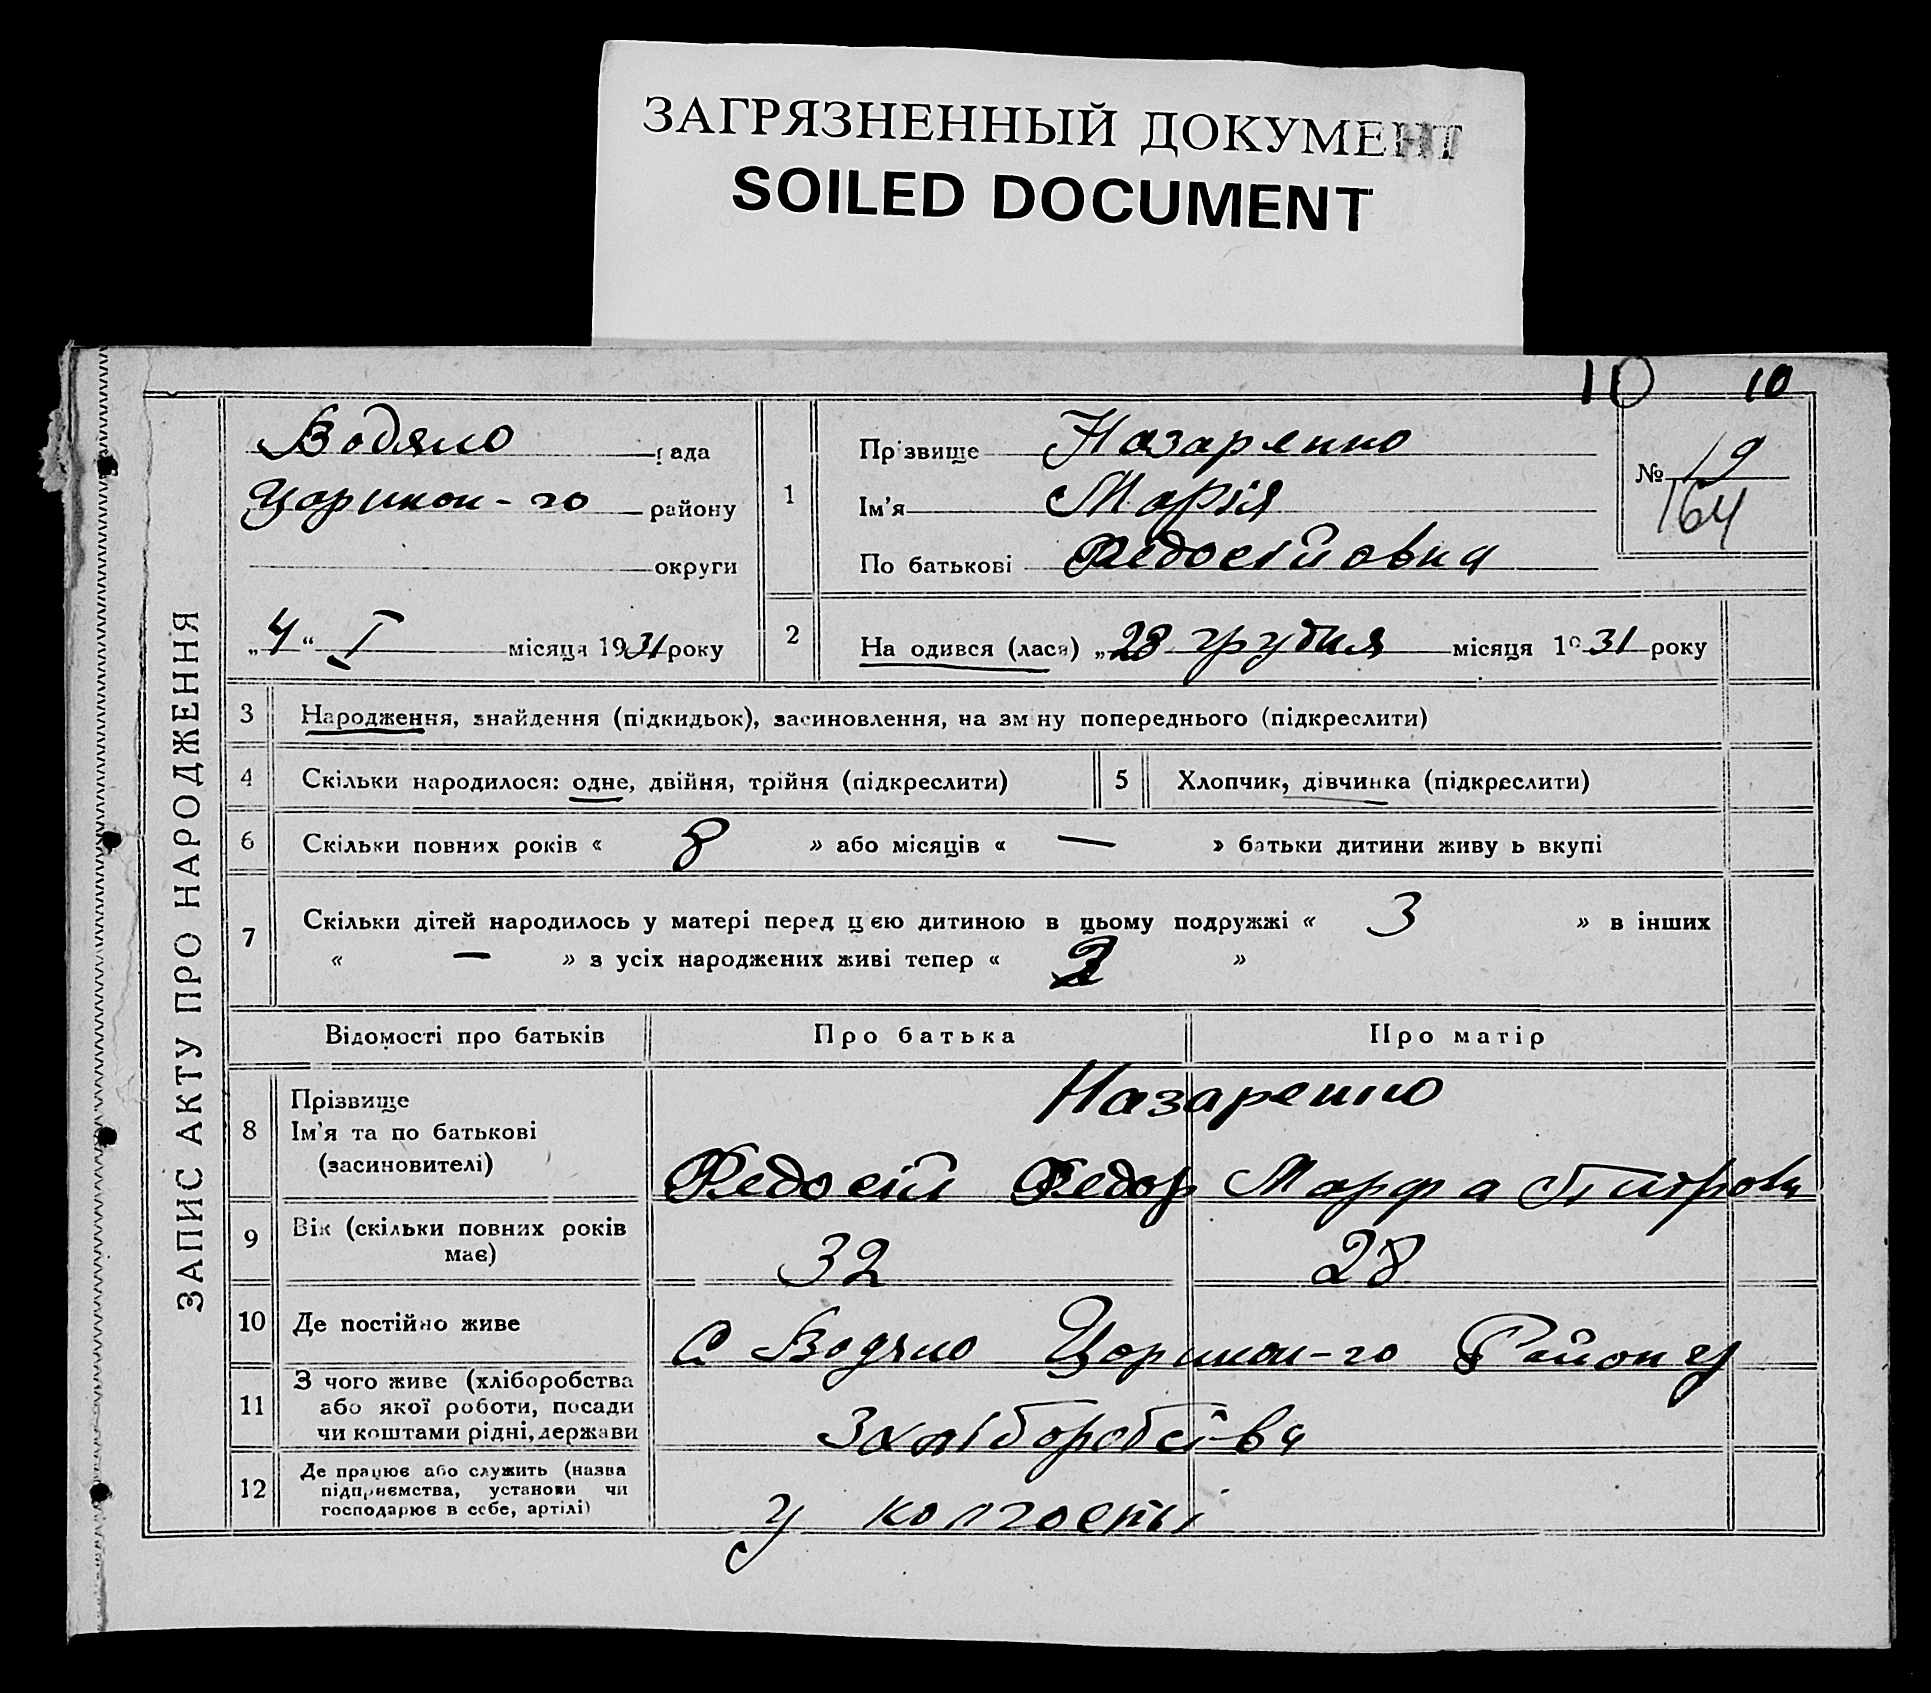 ЗАГРЯЗНЕННЫЙ ДОКУМЕНТ
SOILED DOCUMENT
10 10
ЗАПИС АКТУ ПРО НАРОДЖЕННЯ
Водяно рада
Царичан-го району
округи
„4“ I місяця 1931 року
1
Прізвище Назаренко
Ім'я Марія
По батькові Федосійовна
№ 19
164
2 Народився (лася) „28 грудня місяця 1931 року
3 Народження, знайдення (підкидьок), засиновлення, на зміну попереднього (підкреслити)
4 Скільки народилося: одне, двійня, трійня (підкреслити) 5 Хлопчик, дівчинка (підкреслити)
6 Скільки повних років « 8 » або місяців « — » батьки дитини живуть вкупі
7 Скільки дітей народилось у матері перед цією дитиною в цьому подружжі « 3 » в інших
« — » з усіх народжених живі тепер « 2 »
Відомості про батьків Про батька Про матір
8 Прізвище
Ім'я та по батькові
(засиновителі)
Назаренко
Федосій Федор Марфа Питровн
9 Вік (скільки повних років
має)
32 28
10 Де постійно живе С Водяно Царичан-го Району
11 З чого живе (хліборобства
або якої роботи, посади
чи коштами рідні, держави
З хліборобства
12 Де працює або служить (назва
підприємства, установи чи
господарює в себе, артілі)
у колгоспі